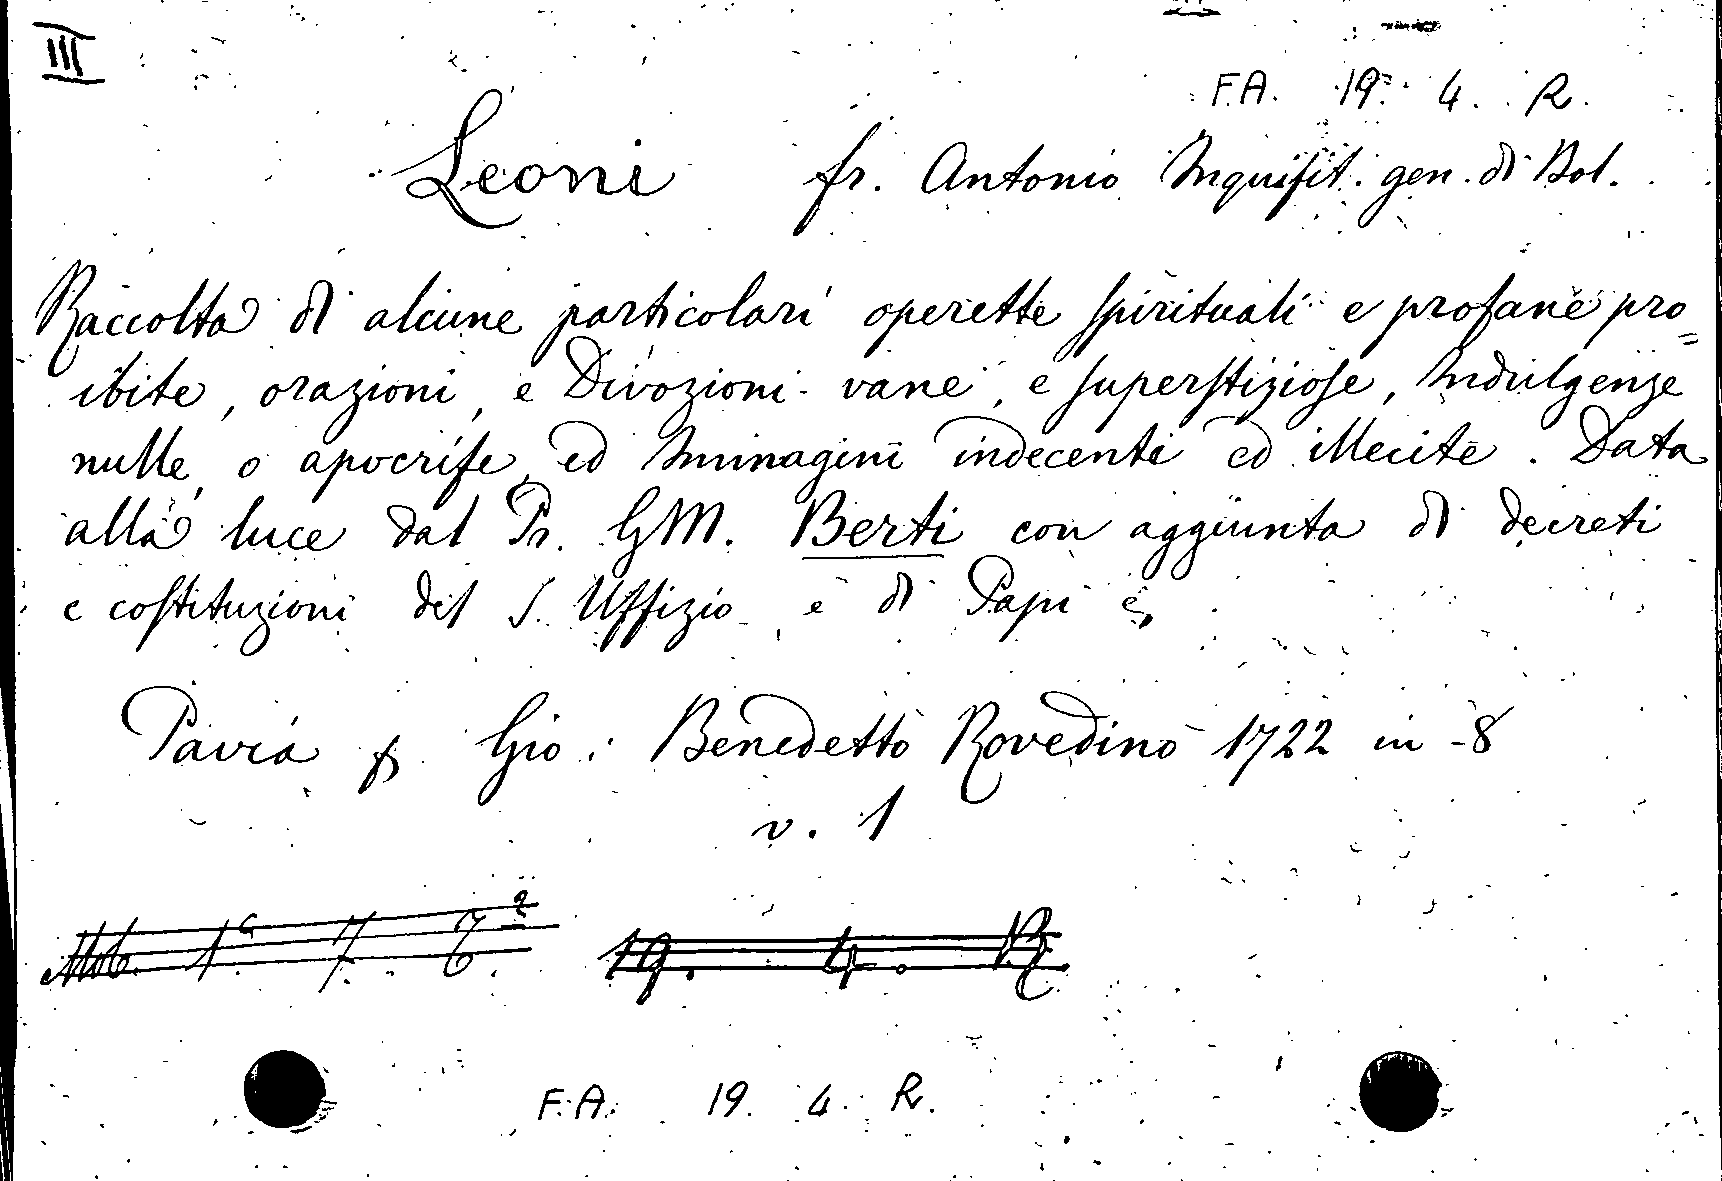 III
F.A. 19. 4. R.
Leoni fr. Antonio Inquisit. gen. di Bol.
Raccolta di alcune particolari operette spirituali e profane pro=
ibite, orazioni, e Divozioni vane, e superstiziose, Indulgenze
nulle, o apocrife, ed Imminagini indecenti ed illecite. Data
alla luce dal Pr. GM. Berti con aggiunta di decreti
e costituzioni del S. Uffizio e di Papi &
Pavia p Gio: Benedetto Rovedino 1722 in -8
v. 1
1a 7. 19. 4. R
F.A. 19. 4. R.